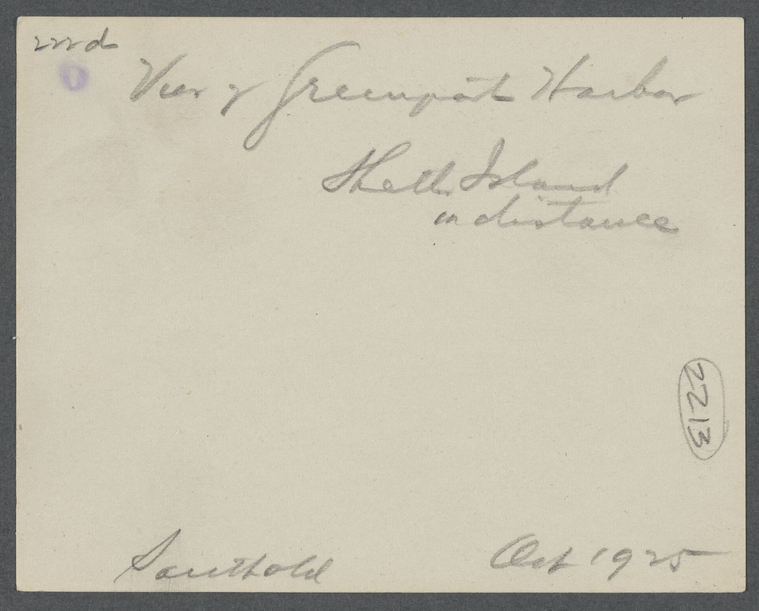 222d
View of Greenport Harbor
Shelter Island
in distance
2213
Southold Oct 1925